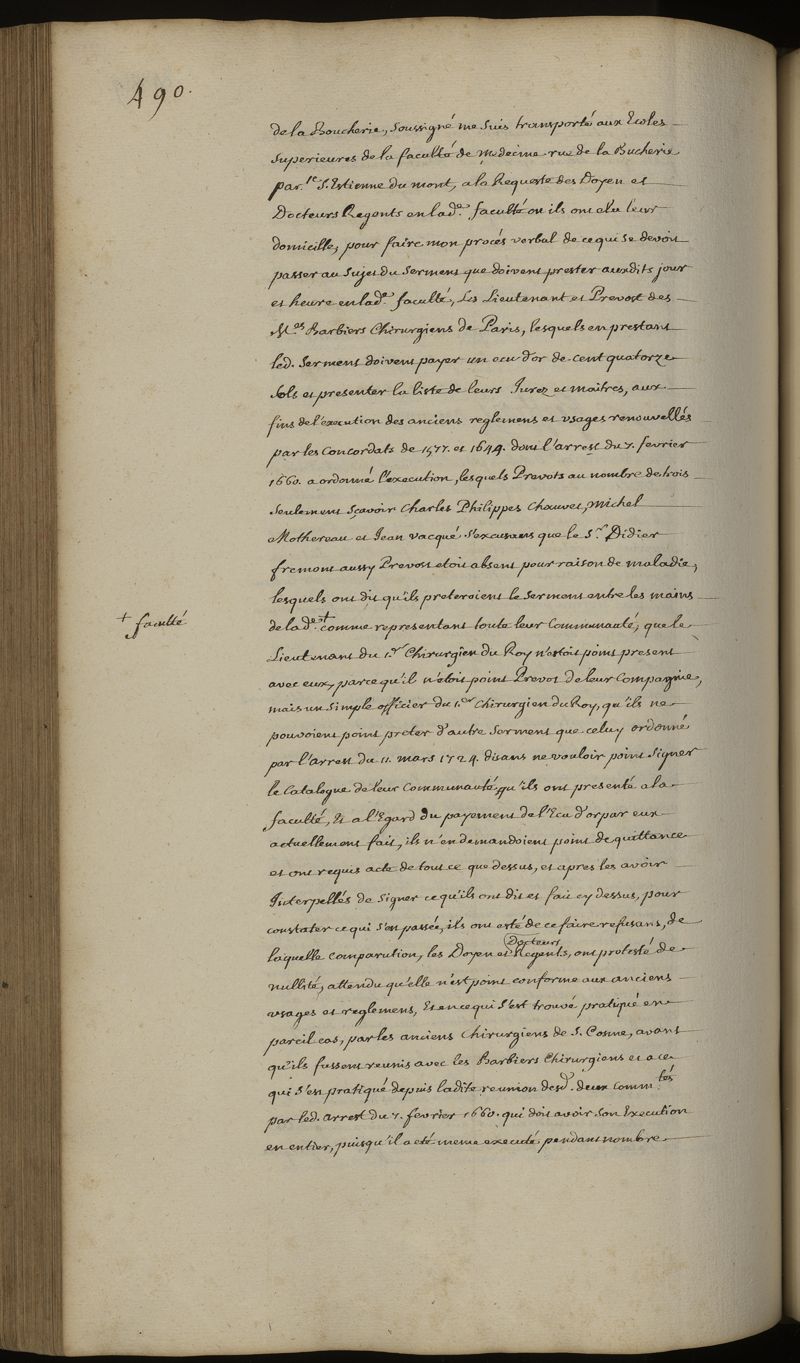 490.
de la Boucherie, soussigné me suis transporté aux Ecoles
superieures de la faculté de Medecine rue de la Bucherie
par.se S. Estienne du mont, a la Requeste des Doyen et
Docteurs Regents en lad.e faculté ou ils ont elu leur
domicille, pour faire mon procés verbal de ce qui se devoit
passer au sujet du Serment que doivent prester auxdits jour
et heure en lad.e faculté, Les Lieutenant et Prevost des
M.es Barbiers Chirurgiens de Paris, lesquels en prestant
led. Serment doivent payer un ecu d'or de cent quatorze
sols et presenter la liste de leurs Jurez et maitres, aux
fins de l'execution des anciens reglemens et usages renouvellés
par les Concordats de 1577. et 1644. dont l'arrest du 7. fevrier
1660. a ordonné l'execution, lesquels Prevots au nombre de trois
seulement sçavoir Charles Philippes Chauvet, Michel
Mothereau et Jean Vacqué s'excusans que le S.r Didier
fremont aussy Prevost etoit absent pour raison de maladie,
lesquels ont dit qu'ils preteroient le serment entre les mains
+ faculté
de la d.e + comme representant toute leur Communauté, que le
Lieutenant du 1.er Chirurgien du Roy n'estoit point present
avec eux, parce qu'il n'etoit point Prevot de leur Compagnie,
mais un simple officier du 1.er Chirurgien du Roy, qu'ils ne
pouvoient point preter d'autre serment que celuy ordonné
par l'arrest du 11. mars 1724. disans ne vouloir point signer
le Catalogue de leur Communauté, qu'ils ont presenté a la
faculté, Et a l'Egard du payement de l'Ecu d'or par eux
actuellement fait, ils n'en demandoient point de quittance
et ont requis acte de tout ce que dessus, et apres les avoir
Interpellés de signer ce qu'ils ont dit et fait cy dessus, pour
constater ce qui s'est passé, ils ont esté de ce faire refusans, de
laquelle comparution, les Doyen et Docteurs Regents, ont protesté de
nullité, attendu qu'elle n'est point conforme aux anciens
usages et reglemens, Et en ce qui s'est trouvé pratiqué en
pareil cas, par les anciens Chirurgiens de S. Cosme, avant
qu'ils fussent reunis avec les Barbiers Chirurgiens et a ce
qui s'est pratiqué depuis ladite reunion desd. deux Comm.tés
par led. arrest du 7. fevrier 1660. qui doit avoir son Execution
en entier, puisqu'il a eté meme executé pendant nombre